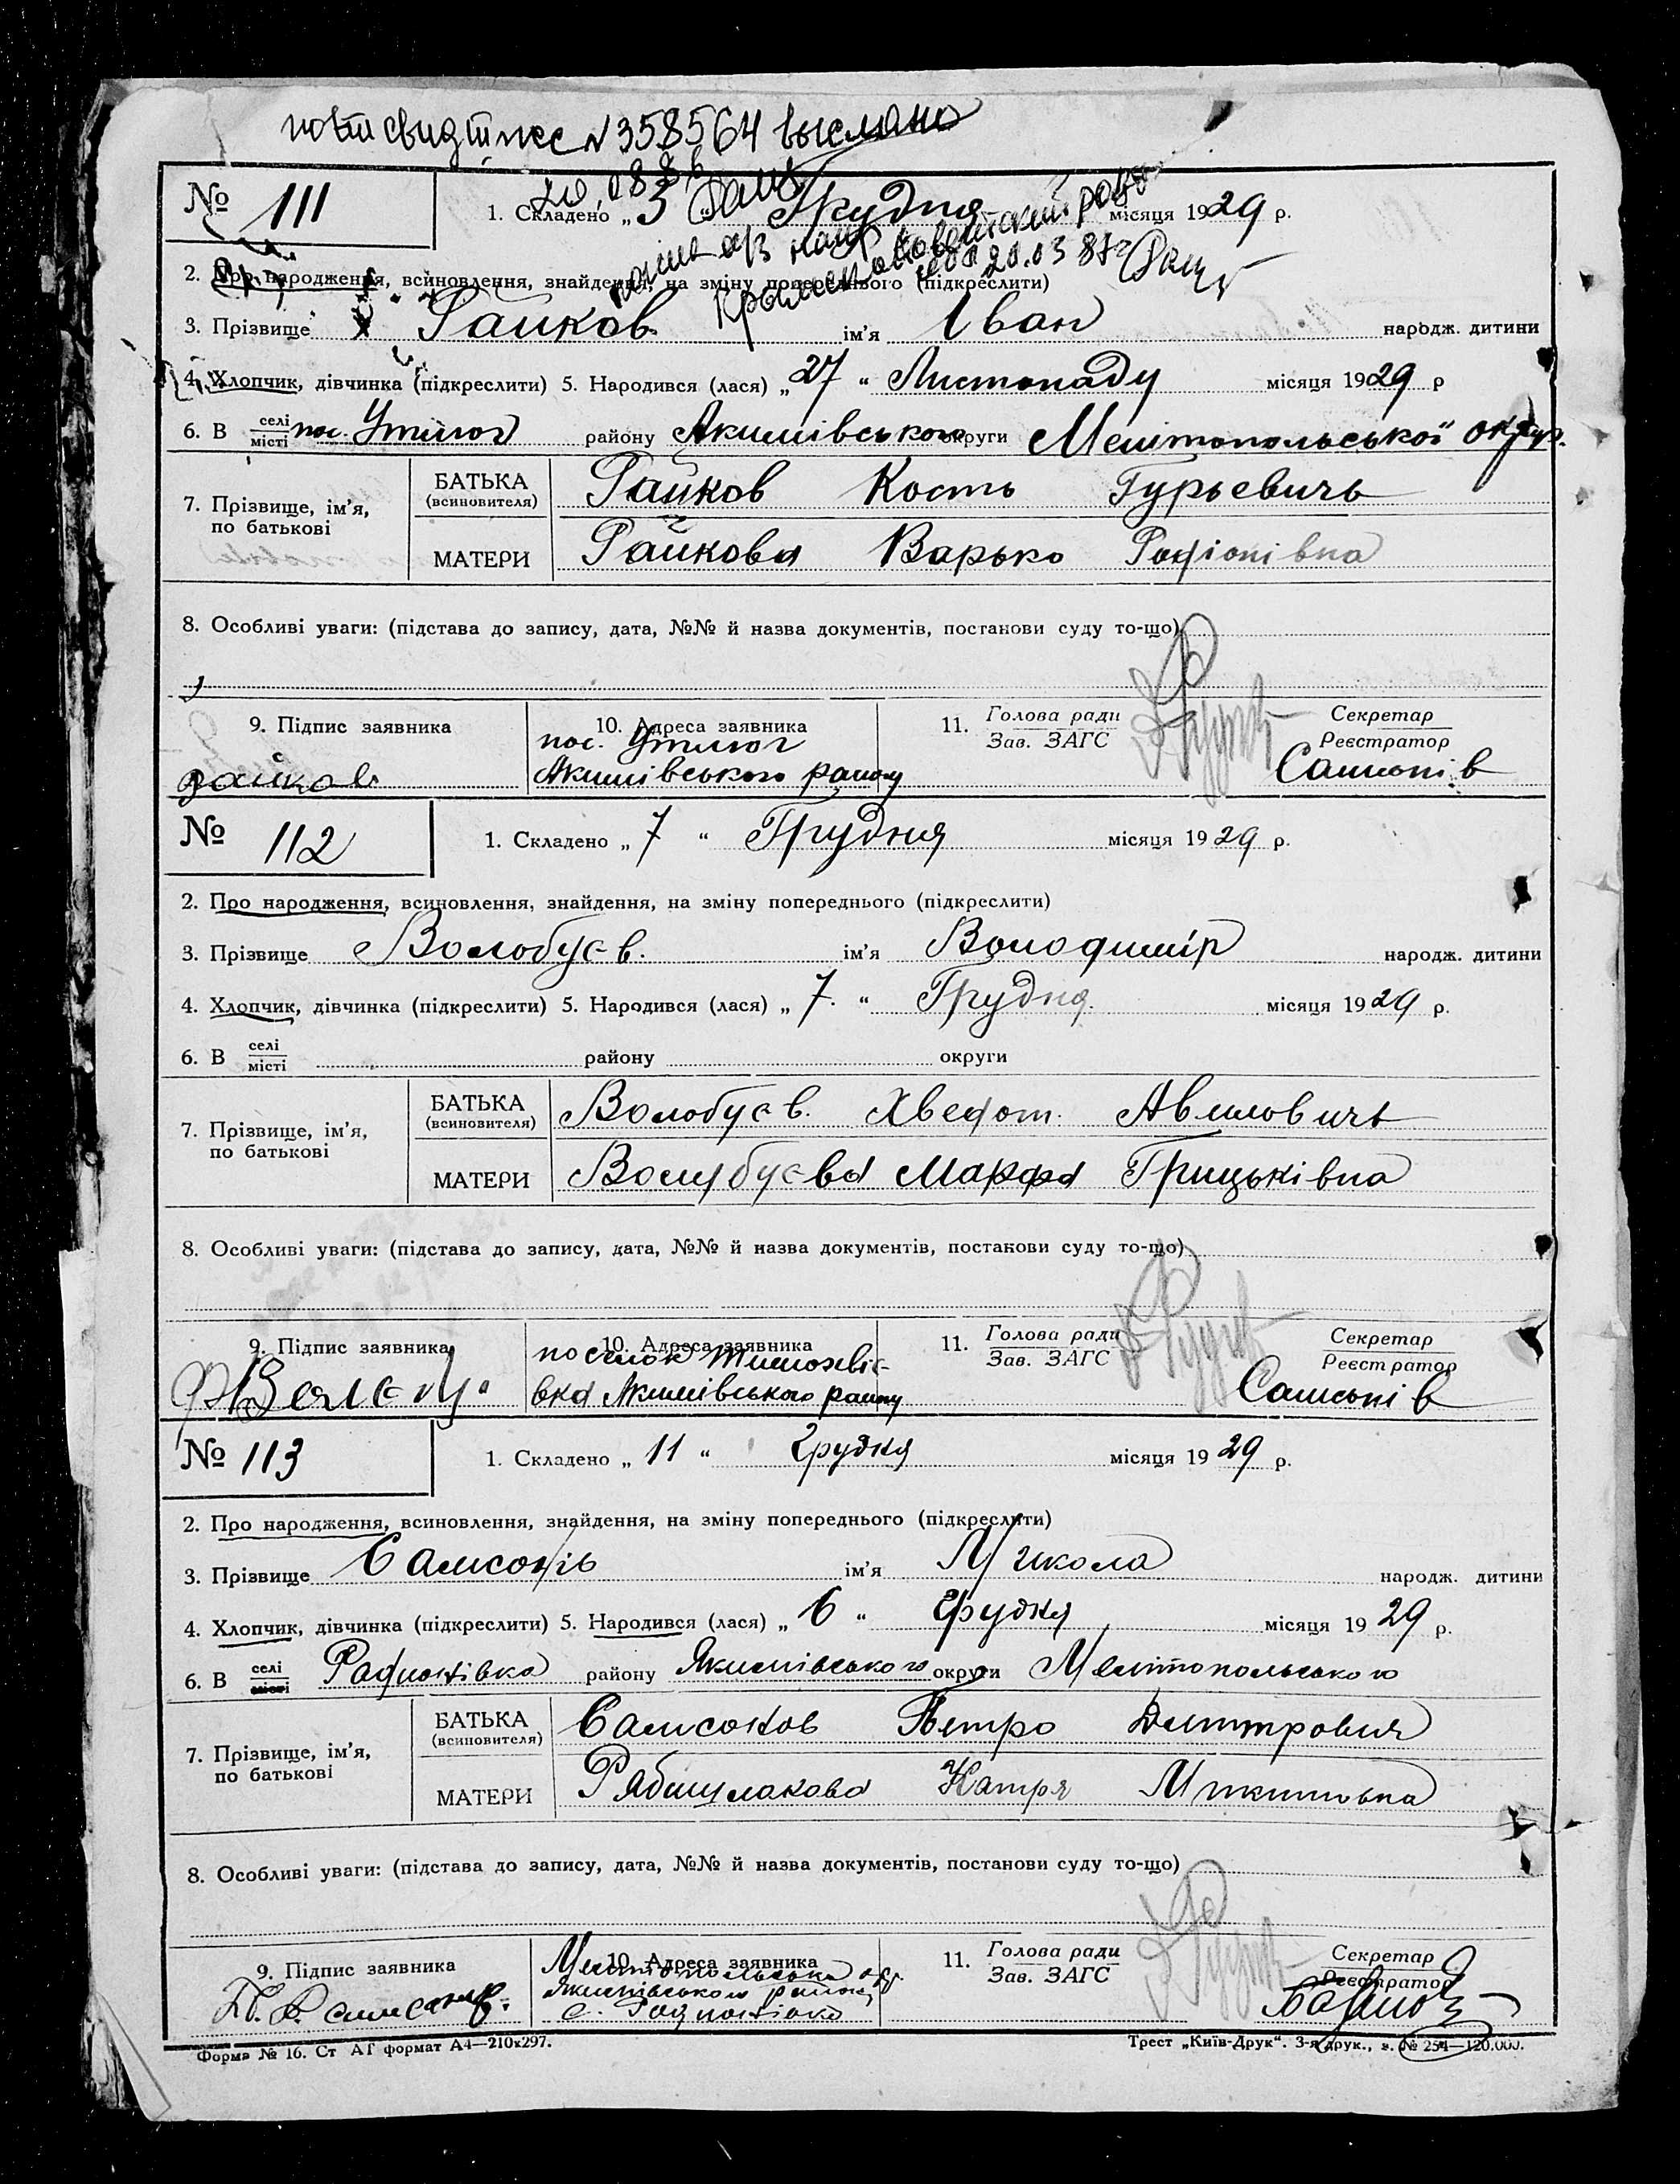 № 358564 выслано
№ 111
1. Складено „ 3 " Грудня місяця 1929 р.
20.03 87г
2. Про народження, всиновлення, знайдення, на зміну попереднього (підкреслити)
3. Прізвище Гайков ім'я Іван народж. дитини
4. Хлопчик, дівчинка (підкреслити) 5. Народився (лася) „ 27 " Листопаду місяця 1929 р
6. В селі місті пос. Утлюг району Акимівського округи Мелітопольської округ.
7. Прізвище, ім'я, по батькові
БАТЬКА (всиновителя) Гайков Кость Гурьевичь
МАТЕРИ Гайкова Варько Родіонівна
8. Особливі уваги: (підстава до запису, дата, №№ й назва документів, постанови суду то-що)
9. Підпис заявника
10. Адреса заявника
пос. Утлюг
Акимівського району
11. Голова ради Зав. ЗАГС
Секретар Реєстратор
Самсонів
№ 112
1. Складено „ 7 " Грудня місяця 1929 р.
2. Про народження, всиновлення, знайдення, на зміну попереднього (підкреслити)
3. Прізвище Волобуєв. ім'я Володимір народж. дитини
4. Хлопчик, дівчинка (підкреслити) 5. Народився (лася) „ 7. " Грудня. місяця 1929 р.
6. В селі місті району округи
7. Прізвище, ім'я, по батькові
БАТЬКА (всиновителя) Волобуєв. Хведот.
МАТЕРИ Волубуєва Марфа Грицьківна
8. Особливі уваги: (підстава до запису, дата, №№ й назва документів, постанови суду то-що)
9. Підпис заявника
10. Адреса заявника
поселок
Акимівського району
11. Голова ради Зав. ЗАГС
Секретар Реєстратор
Самсонів
№ 113
1. Складено „ 11 " Грудня місяця 1929 р.
2. Про народження, всиновлення, знайдення, на зміну попереднього (підкреслити)
3. Прізвище Самсонів ім'я Микола народж. дитини
4. Хлопчик, дівчинка (підкреслити) 5. Народився (лася) „ 6 " Грудня місяця 1929 р.
6. В селі місті Радионівка району Якимівського округи Мелітопольського
7. Прізвище, ім'я, по батькові
БАТЬКА (всиновителя) Самсонов Петро Дмитрович
МАТЕРИ Катря Микитовна
8. Особливі уваги: (підстава до запису, дата, №№ й назва документів, постанови суду то-що)
9. Підпис заявника
10. Адреса заявника
Мелітопольська окр.
Якимівського району
с. Радионівка
11. Голова ради Зав. ЗАГС
Секретар Реєстратор
Форма № 16. Ст АГ формат А4—210х297.
Трест „Київ-Друк". 3-я друк., з. № 254—120.000.